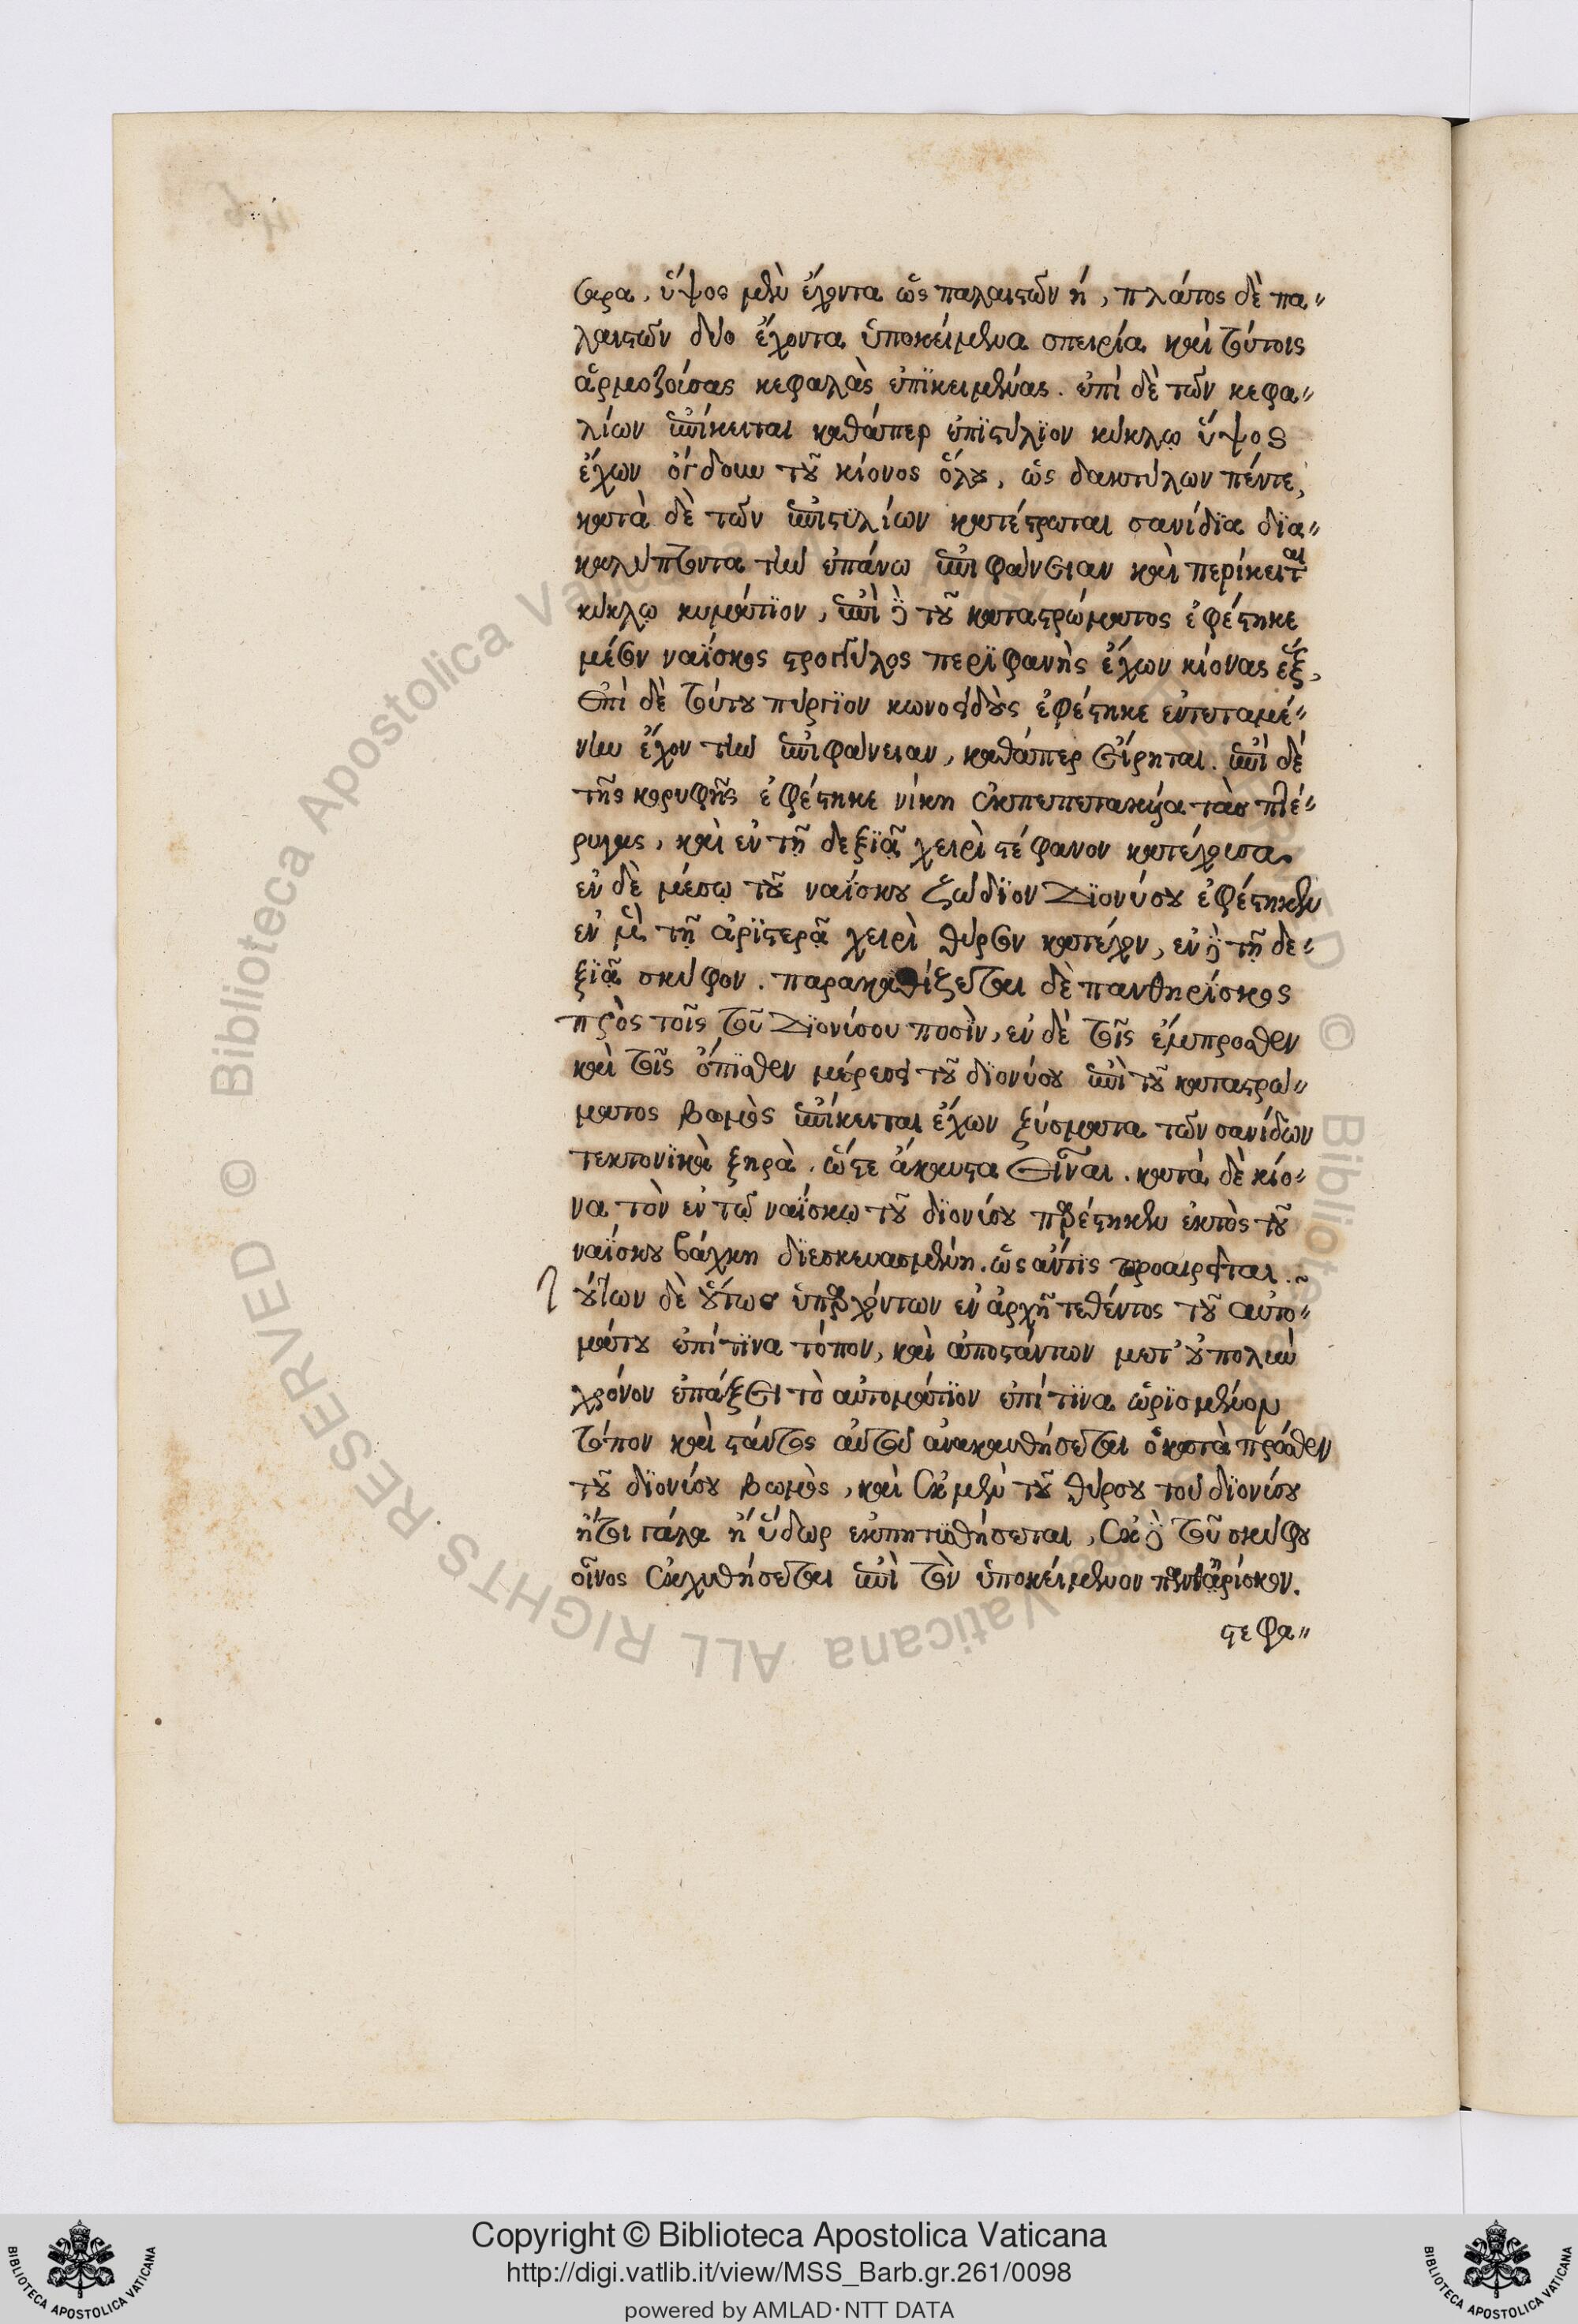 τερα, ὕψος μὲν ἔχοντα ὡς παλαιστῶν η, πλάτος δὲ πα〃
λαιστῶν δύο ἔχοντα ὑποκείμενα σπειρία καὶ τούτοις
ἁρμοζούσας κεφαλὰς ἐπϊκειμένας. ἐπὶ δὲ τῶν κεφα〃
λίων ἐπίκειται καθάπερ ἐπϊστύλϊον κύκλῳ ὕψος
ἔχων ὄγδοον τοῦ κίονος ὅλου, ὡς δακτύλων πέντε,
κατὰ δὲ τῶν ἐπιστϋλίων κατέστρωται σανίδϊα δϊα〃
καλύπτοντα τὴν ἐπάνω ἐπιφάνειαν καὶ περίκειται
κύκλῳ κυμάτϊον, ἐπὶ δὲ τοῦ καταστρώματος ἐφέστηκε
μέσον ναΐσκος στρογγύλος περϊφανὴς ἔχων κίονας ἓξ,
ἐπὶ δὲ τούτου πυργϊον κωνοειδοὺς ἐφέστηκε ἐντεταμέ〃
νην ἔχον τὴν ἐπιφάνειαν, καθάπερ εἴρηται. ἐπὶ δὲ
τῆς κορυφῆς ἐφέστηκε νίκη ἐκπεπετακυῖα τὰς πτέ〃
ρυγας, καὶ ἐν τῇ δεξϊᾷ χειρὶ στέφανον κατέχουσα
ἐν δὲ μέσῳ τοῦ ναΐσκου ζώδϊον Δϊονύσου ἐφέστηκεν
ἐν μὲν τῇ ἀρϊστερᾷ χειρὶ θύρσον κατέχον, ἐν δὲ τῇ δε〃
ξϊᾷ σκύφον. παρακαθίζεται δὲ πανθηρΐσκος
πρὸς τοῖς τοῦ Δϊονύσου ποσὶν, ἐν δὲ τοῖς ἔμπροσθεν
καὶ τοῖς ὄπϊσθεν μέρεσι τοῦ δϊονύσου ἐπὶ τοῦ καταστρώ〃
ματος βωμὸς ἐπίκειται ἔχων ξύσματα τῶν σανίδων
τεκτονϊκὰ ξηρὰ. ὥστε ἄκαυστα εἶναι. κατὰ δὲ κίο〃
να τὸν ἐν τῷ ναΐσκῳ τοῦ δϊονύσου παρέστηκεν ἐκτὸς τοῦ
ναΐσκου βάκχη δϊεσκευασμένη. ὡς ἄν τις προαιρεῖται.
τούτων δὲ οὕτως ὑπαρχόντων ἐν ἀρχῇ τεθέντος τοῦ αὐτο〃
μάτου ἐπί τϊνα τόπον, καὶ ἀποστάντων μετ’ οὐ πολὺν
χρόνον ὑπάξει τὸ αὐτομάτϊον ἐπί τϊνα ὡρϊσμένον
τόπον καὶ στάντος αὐτοῦ ἀνακαυθήσεται ὁ κατὰ πρόσθεν
τοῦ δϊονύσου βωμὸς, καὶ ἐκ μὲν τοῦ θύρσου τοῦ δϊονύσου
ἤτοι γάλα ἢ ὕδωρ ἐκπητισθήσεται, ἐκ δὲ τοῦ σκύφου
οἶνος ἐκχυθήσεται ἐπὶ τὸν ὑποκείμενον πανθηρίσκον.
στεφα〃
Copyright © Biblioteca Apostolica Vaticana
http://digi.vatlib.it/view/MSS_Barb.gr.261/0098
powered by AMLAD·NTT DATA